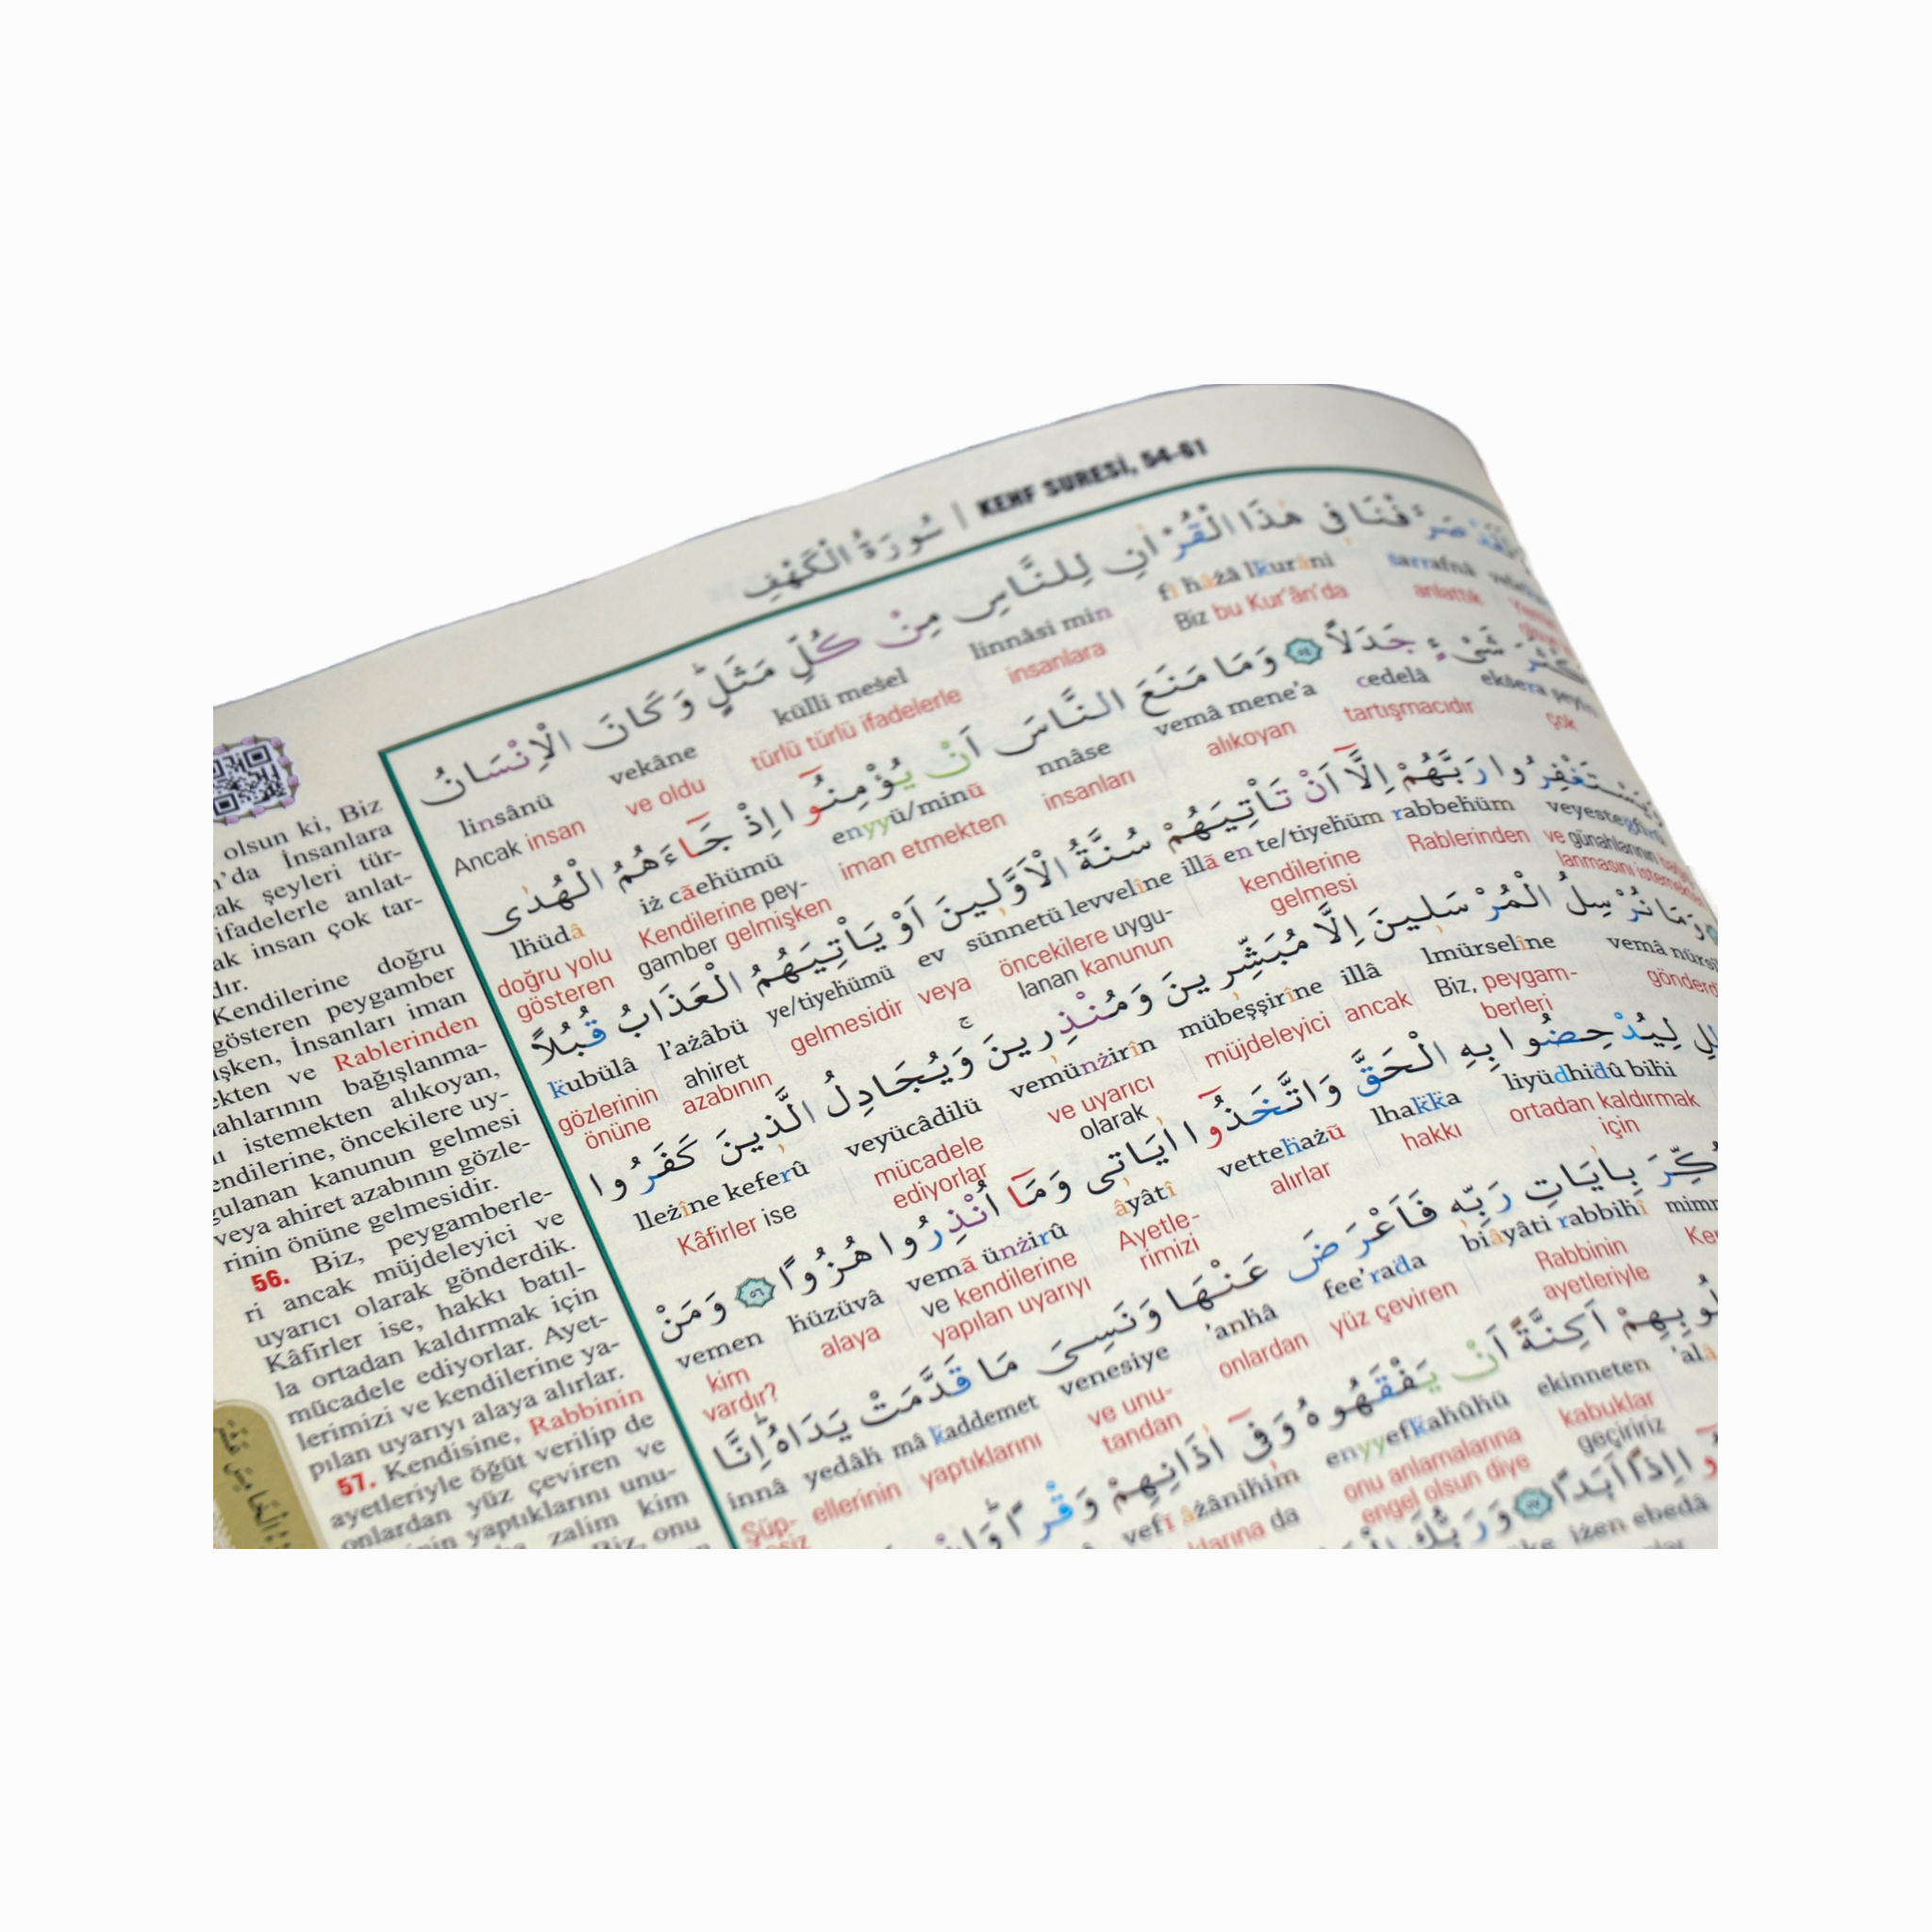 سُورَةُ الْكَهْفِ | KEHF SURESİ, 54-61
صَرَّفْنَا فِى هٰذَا الْقُرْاٰنِ لِلنَّاسِ مِنْ كُلِّ مَثَلٍ وَكَانَ الْاِنْسَانُ
sarrafnâ fî hâżâ lkurâni linnâsi min külli meśel vekâne linsânü
anlattık Biz bu Kur'ân'da insanlara türlü türlü ifadelerle ve oldu Ancak insan
شَىْءٍ جَدَلًا ﴿٥٤﴾ وَمَا مَنَعَ النَّاسَ اَنْ يُؤْمِنُٓوا اِذْ جَٓاءَهُمُ الْهُدٰى
ekśera şeyin cedelâ vemâ mene'a nnâse enyyü/minū iż cāehümü lhüdâ
çok tartışmacıdır alıkoyan insanları iman etmekten Kendilerine pey-
gamber gelmişken doğru yolu
gösteren
رَبَّهُمْ اِلَّٓا اَنْ تَأْتِيَهُمْ سُنَّةُ الْاَوَّلٖينَ اَوْ يَأْتِيَهُمُ الْعَذَابُ قُبُلًا
rabbehüm illā en te/tiyehüm sünnetü levvelîne ev ye/tiyehümü l'ażâbü kubülâ
ve günahlarının
Rablerinden kendilerine
gelmesi öncekilere uygu-
lanan kanunun veya gelmesidir ahiret
azabının gözlerinin
önüne
وَمَا نُرْسِلُ الْمُرْسَلٖينَ اِلَّا مُبَشِّرٖينَ وَمُنْذِرٖينَۚ وَيُجَادِلُ الَّذٖينَ كَفَرُوا
lmürselîne illâ mübeşşirîne vemünżirîn veyücâdilü lleżîne keferû
Biz, peygam-
berleri ancak müjdeleyici ve uyarıcı
olarak mücadele
ediyorlar Kâfirler ise
لِيُدْحِضُوا بِهِ الْحَقَّ وَاتَّخَذُٓوا اٰيَاتٖى وَمَٓا اُنْذِرُوا هُزُوًا ﴿٥٦﴾ وَمَنْ
liyüdhidû bihi lhakka vettehażū âyâtî vemā ünżirû hüzüvâ vemen
ortadan kaldırmak
için hakkı alırlar Ayetle-
rimizi ve kendilerine
yapılan uyarıyı alaya kim
vardır?
بِاٰيَاتِ رَبِّهٖ فَاَعْرَضَ عَنْهَا وَنَسِىَ مَا قَدَّمَتْ يَدَاهُؕ اِنَّا
biâyâti rabbihî fee'rada 'anhâ venesiye mâ kaddemet yedâh innâ
Rabbinin
ayetleriyle yüz çeviren onlardan ve unu-
tandan yaptıklarını ellerinin Şüp-
اَكِنَّةً اَنْ يَفْقَهُوهُ وَفٖٓى اٰذَانِهِمْ وَقْرًاؕ وَاِنْ
ekinneten enyyefkahûhü vefī âżânihim
kabuklar
geçiririz onu anlamalarına
engel olsun diye da
اِذًا اَبَدًا ﴿٥٧﴾ وَرَبُّكَ
iżen ebedâ
olsun ki, Biz
İnsanlara
şeyleri tür-
ifadelerle anlat-
insan çok tar-
Kendilerine doğru
gösteren peygamber
İnsanları iman
ve Rablerinden
bağışlanma-
istemekten alıkoyan,
öncekilere uy-
gulanan kanunun gelmesi
veya ahiret azabının gözle-
rinin önüne gelmesidir.
56. Biz, peygamberle-
ri ancak müjdeleyici ve
uyarıcı olarak gönderdik.
Kâfirler ise, hakkı batıl-
la ortadan kaldırmak için
mücadele ediyorlar. Ayet-
lerimizi ve kendilerine ya-
pılan uyarıyı alaya alırlar.
57. Kendisine, Rabbinin
ayetleriyle öğüt verilip de
onlardan yüz çeviren ve
yaptıklarını unu-
zalim kim
Biz, onu